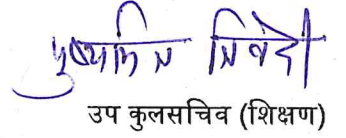 पुष्यमित्र त्रिवेदी
उप कुलसचिव (शिक्षण)